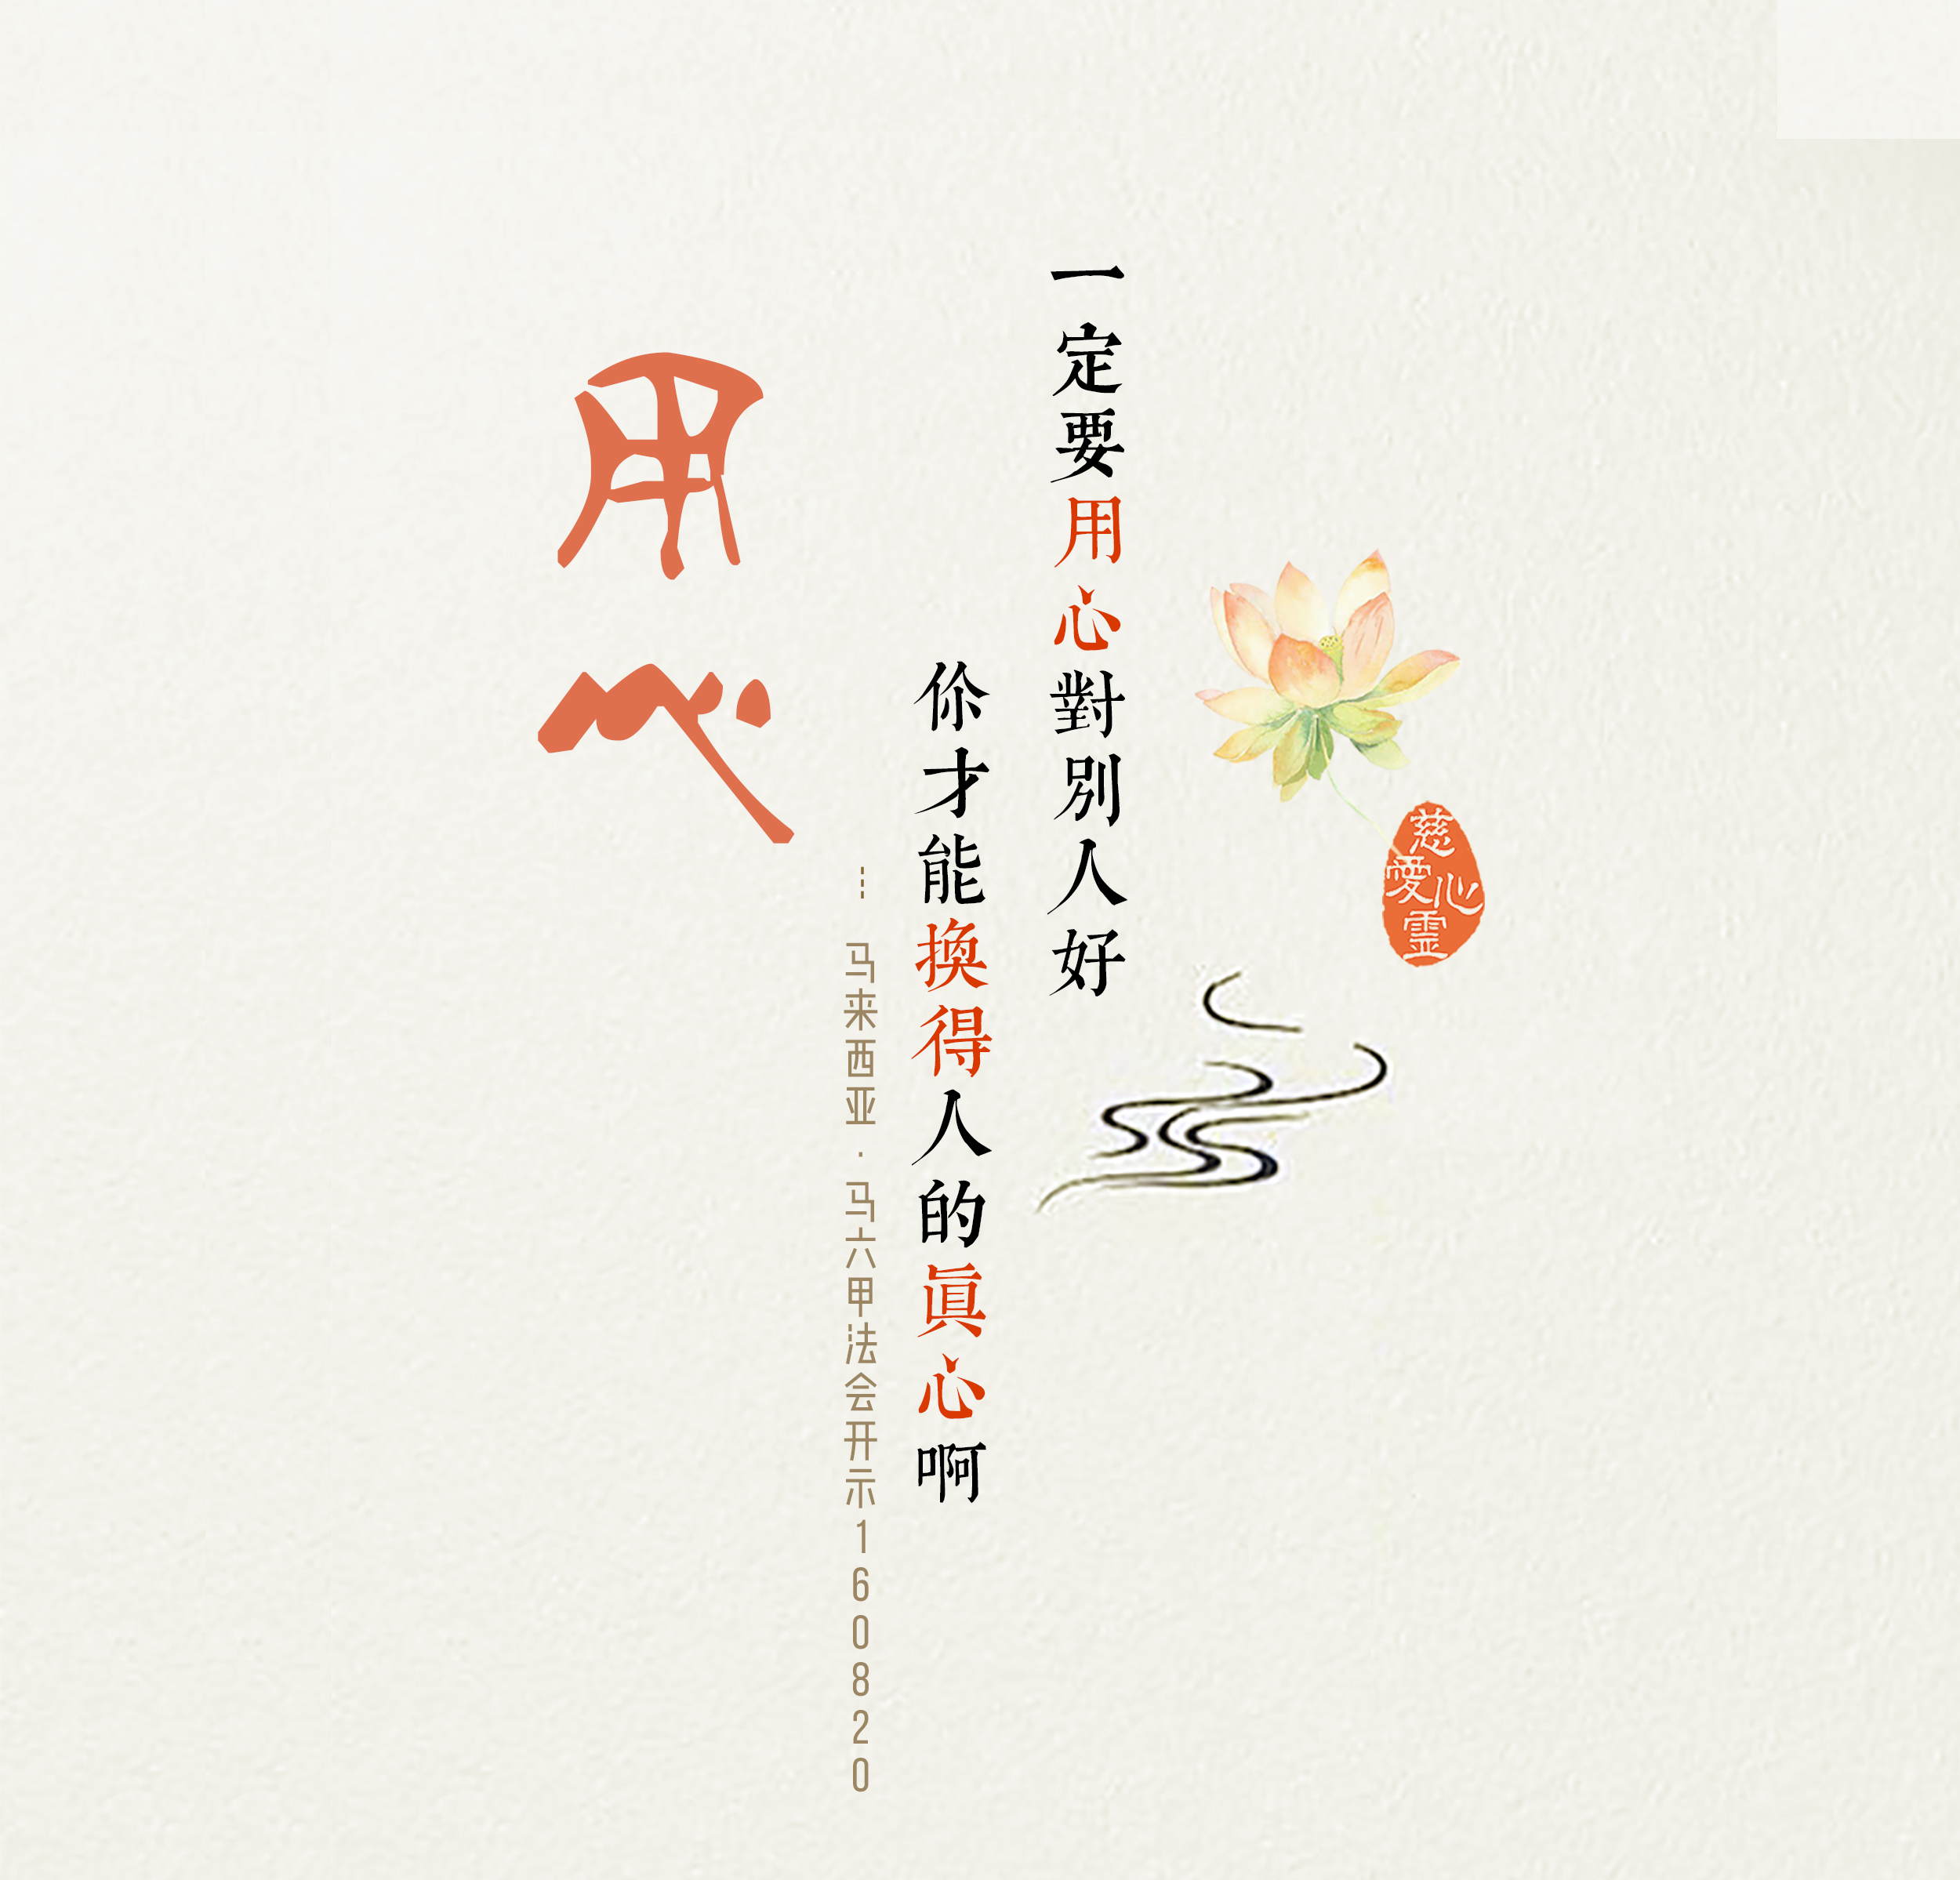 一定要用心對別人好
伱才能換得人的眞心啊
--- 马来西亚·马六甲法会开示160820
用心
慈愛心霊